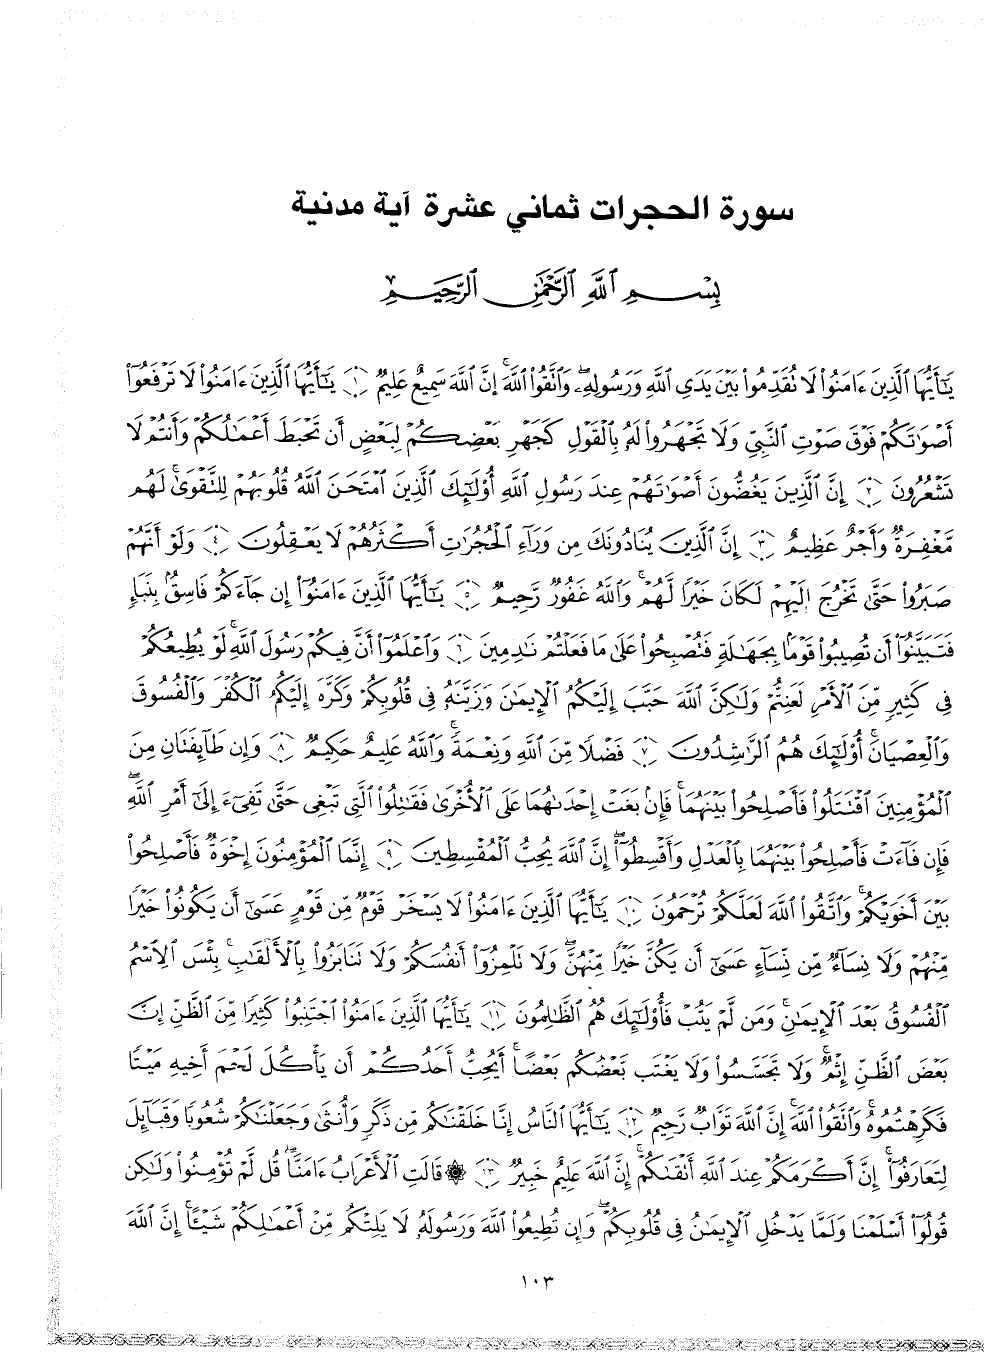 سورة الحجرات ثماني عشرة آية مدنية
بِسْمِ ٱللَّهِ ٱلرَّحْمَٰنِ ٱلرَّحِيمِ
يَٰٓأَيُّهَا ٱلَّذِينَ ءَامَنُوا۟ لَا تُقَدِّمُوا۟ بَيْنَ يَدَىِ ٱللَّهِ وَرَسُولِهِۦۖ وَٱتَّقُوا۟ ٱللَّهَۚ إِنَّ ٱللَّهَ سَمِيعٌ عَلِيمٌ ﴿١﴾ يَٰٓأَيُّهَا ٱلَّذِينَ ءَامَنُوا۟ لَا تَرْفَعُوٓا۟
أَصْوَٰتَكُمْ فَوْقَ صَوْتِ ٱلنَّبِىِّ وَلَا تَجْهَرُوا۟ لَهُۥ بِٱلْقَوْلِ كَجَهْرِ بَعْضِكُمْ لِبَعْضٍ أَن تَحْبَطَ أَعْمَٰلُكُمْ وَأَنتُمْ لَا
تَشْعُرُونَ ﴿٢﴾ إِنَّ ٱلَّذِينَ يَغُضُّونَ أَصْوَٰتَهُمْ عِندَ رَسُولِ ٱللَّهِ أُو۟لَٰٓئِكَ ٱلَّذِينَ ٱمْتَحَنَ ٱللَّهُ قُلُوبَهُمْ لِلتَّقْوَىٰۚ لَهُم
مَّغْفِرَةٌ وَأَجْرٌ عَظِيمٌ ﴿٣﴾ إِنَّ ٱلَّذِينَ يُنَادُونَكَ مِن وَرَآءِ ٱلْحُجُرَٰتِ أَكْثَرُهُمْ لَا يَعْقِلُونَ ﴿٤﴾ وَلَوْ أَنَّهُمْ
صَبَرُوا۟ حَتَّىٰ تَخْرُجَ إِلَيْهِمْ لَكَانَ خَيْرًا لَّهُمْۚ وَٱللَّهُ غَفُورٌ رَّحِيمٌ ﴿٥﴾ يَٰٓأَيُّهَا ٱلَّذِينَ ءَامَنُوٓا۟ إِن جَآءَكُمْ فَاسِقٌۢ بِنَبَإٍ
فَتَبَيَّنُوٓا۟ أَن تُصِيبُوا۟ قَوْمًۢا بِجَهَٰلَةٍ فَتُصْبِحُوا۟ عَلَىٰ مَا فَعَلْتُمْ نَٰدِمِينَ ﴿٦﴾ وَٱعْلَمُوٓا۟ أَنَّ فِيكُمْ رَسُولَ ٱللَّهِۚ لَوْ يُطِيعُكُمْ
فِى كَثِيرٍ مِّنَ ٱلْأَمْرِ لَعَنِتُّمْ وَلَٰكِنَّ ٱللَّهَ حَبَّبَ إِلَيْكُمُ ٱلْإِيمَٰنَ وَزَيَّنَهُۥ فِى قُلُوبِكُمْ وَكَرَّهَ إِلَيْكُمُ ٱلْكُفْرَ وَٱلْفُسُوقَ
وَٱلْعِصْيَانَۚ أُو۟لَٰٓئِكَ هُمُ ٱلرَّٰشِدُونَ ﴿٧﴾ فَضْلًا مِّنَ ٱللَّهِ وَنِعْمَةًۚ وَٱللَّهُ عَلِيمٌ حَكِيمٌ ﴿٨﴾ وَإِن طَآئِفَتَانِ مِنَ
ٱلْمُؤْمِنِينَ ٱقْتَتَلُوا۟ فَأَصْلِحُوا۟ بَيْنَهُمَاۖ فَإِنۢ بَغَتْ إِحْدَىٰهُمَا عَلَى ٱلْأُخْرَىٰ فَقَٰتِلُوا۟ ٱلَّتِى تَبْغِى حَتَّىٰ تَفِىٓءَ إِلَىٰٓ أَمْرِ ٱللَّهِۚ
فَإِن فَآءَتْ فَأَصْلِحُوا۟ بَيْنَهُمَا بِٱلْعَدْلِ وَأَقْسِطُوٓا۟ۖ إِنَّ ٱللَّهَ يُحِبُّ ٱلْمُقْسِطِينَ ﴿٩﴾ إِنَّمَا ٱلْمُؤْمِنُونَ إِخْوَةٌ فَأَصْلِحُوا۟
بَيْنَ أَخَوَيْكُمْۚ وَٱتَّقُوا۟ ٱللَّهَ لَعَلَّكُمْ تُرْحَمُونَ ﴿١٠﴾ يَٰٓأَيُّهَا ٱلَّذِينَ ءَامَنُوا۟ لَا يَسْخَرْ قَوْمٌ مِّن قَوْمٍ عَسَىٰٓ أَن يَكُونُوا۟ خَيْرًا
مِّنْهُمْ وَلَا نِسَآءٌ مِّن نِّسَآءٍ عَسَىٰٓ أَن يَكُنَّ خَيْرًا مِّنْهُنَّۖ وَلَا تَلْمِزُوٓا۟ أَنفُسَكُمْ وَلَا تَنَابَزُوا۟ بِٱلْأَلْقَٰبِۖ بِئْسَ ٱلِٱسْمُ
ٱلْفُسُوقُ بَعْدَ ٱلْإِيمَٰنِۚ وَمَن لَّمْ يَتُبْ فَأُو۟لَٰٓئِكَ هُمُ ٱلظَّٰلِمُونَ ﴿١١﴾ يَٰٓأَيُّهَا ٱلَّذِينَ ءَامَنُوا۟ ٱجْتَنِبُوا۟ كَثِيرًا مِّنَ ٱلظَّنِّ إِنَّ
بَعْضَ ٱلظَّنِّ إِثْمٌۖ وَلَا تَجَسَّسُوا۟ وَلَا يَغْتَب بَّعْضُكُم بَعْضًاۚ أَيُحِبُّ أَحَدُكُمْ أَن يَأْكُلَ لَحْمَ أَخِيهِ مَيْتًا
فَكَرِهْتُمُوهُۚ وَٱتَّقُوا۟ ٱللَّهَۚ إِنَّ ٱللَّهَ تَوَّابٌ رَّحِيمٌ ﴿١٢﴾ يَٰٓأَيُّهَا ٱلنَّاسُ إِنَّا خَلَقْنَٰكُم مِّن ذَكَرٍ وَأُنثَىٰ وَجَعَلْنَٰكُمْ شُعُوبًا وَقَبَآئِلَ
لِتَعَارَفُوٓا۟ۚ إِنَّ أَكْرَمَكُمْ عِندَ ٱللَّهِ أَتْقَىٰكُمْۚ إِنَّ ٱللَّهَ عَلِيمٌ خَبِيرٌ ﴿١٣﴾ ۞ قَالَتِ ٱلْأَعْرَابُ ءَامَنَّاۖ قُل لَّمْ تُؤْمِنُوا۟ وَلَٰكِن
قُولُوٓا۟ أَسْلَمْنَا وَلَمَّا يَدْخُلِ ٱلْإِيمَٰنُ فِى قُلُوبِكُمْۖ وَإِن تُطِيعُوا۟ ٱللَّهَ وَرَسُولَهُۥ لَا يَلِتْكُم مِّنْ أَعْمَٰلِكُمْ شَيْـًٔاۚ إِنَّ ٱللَّهَ
١٠٣